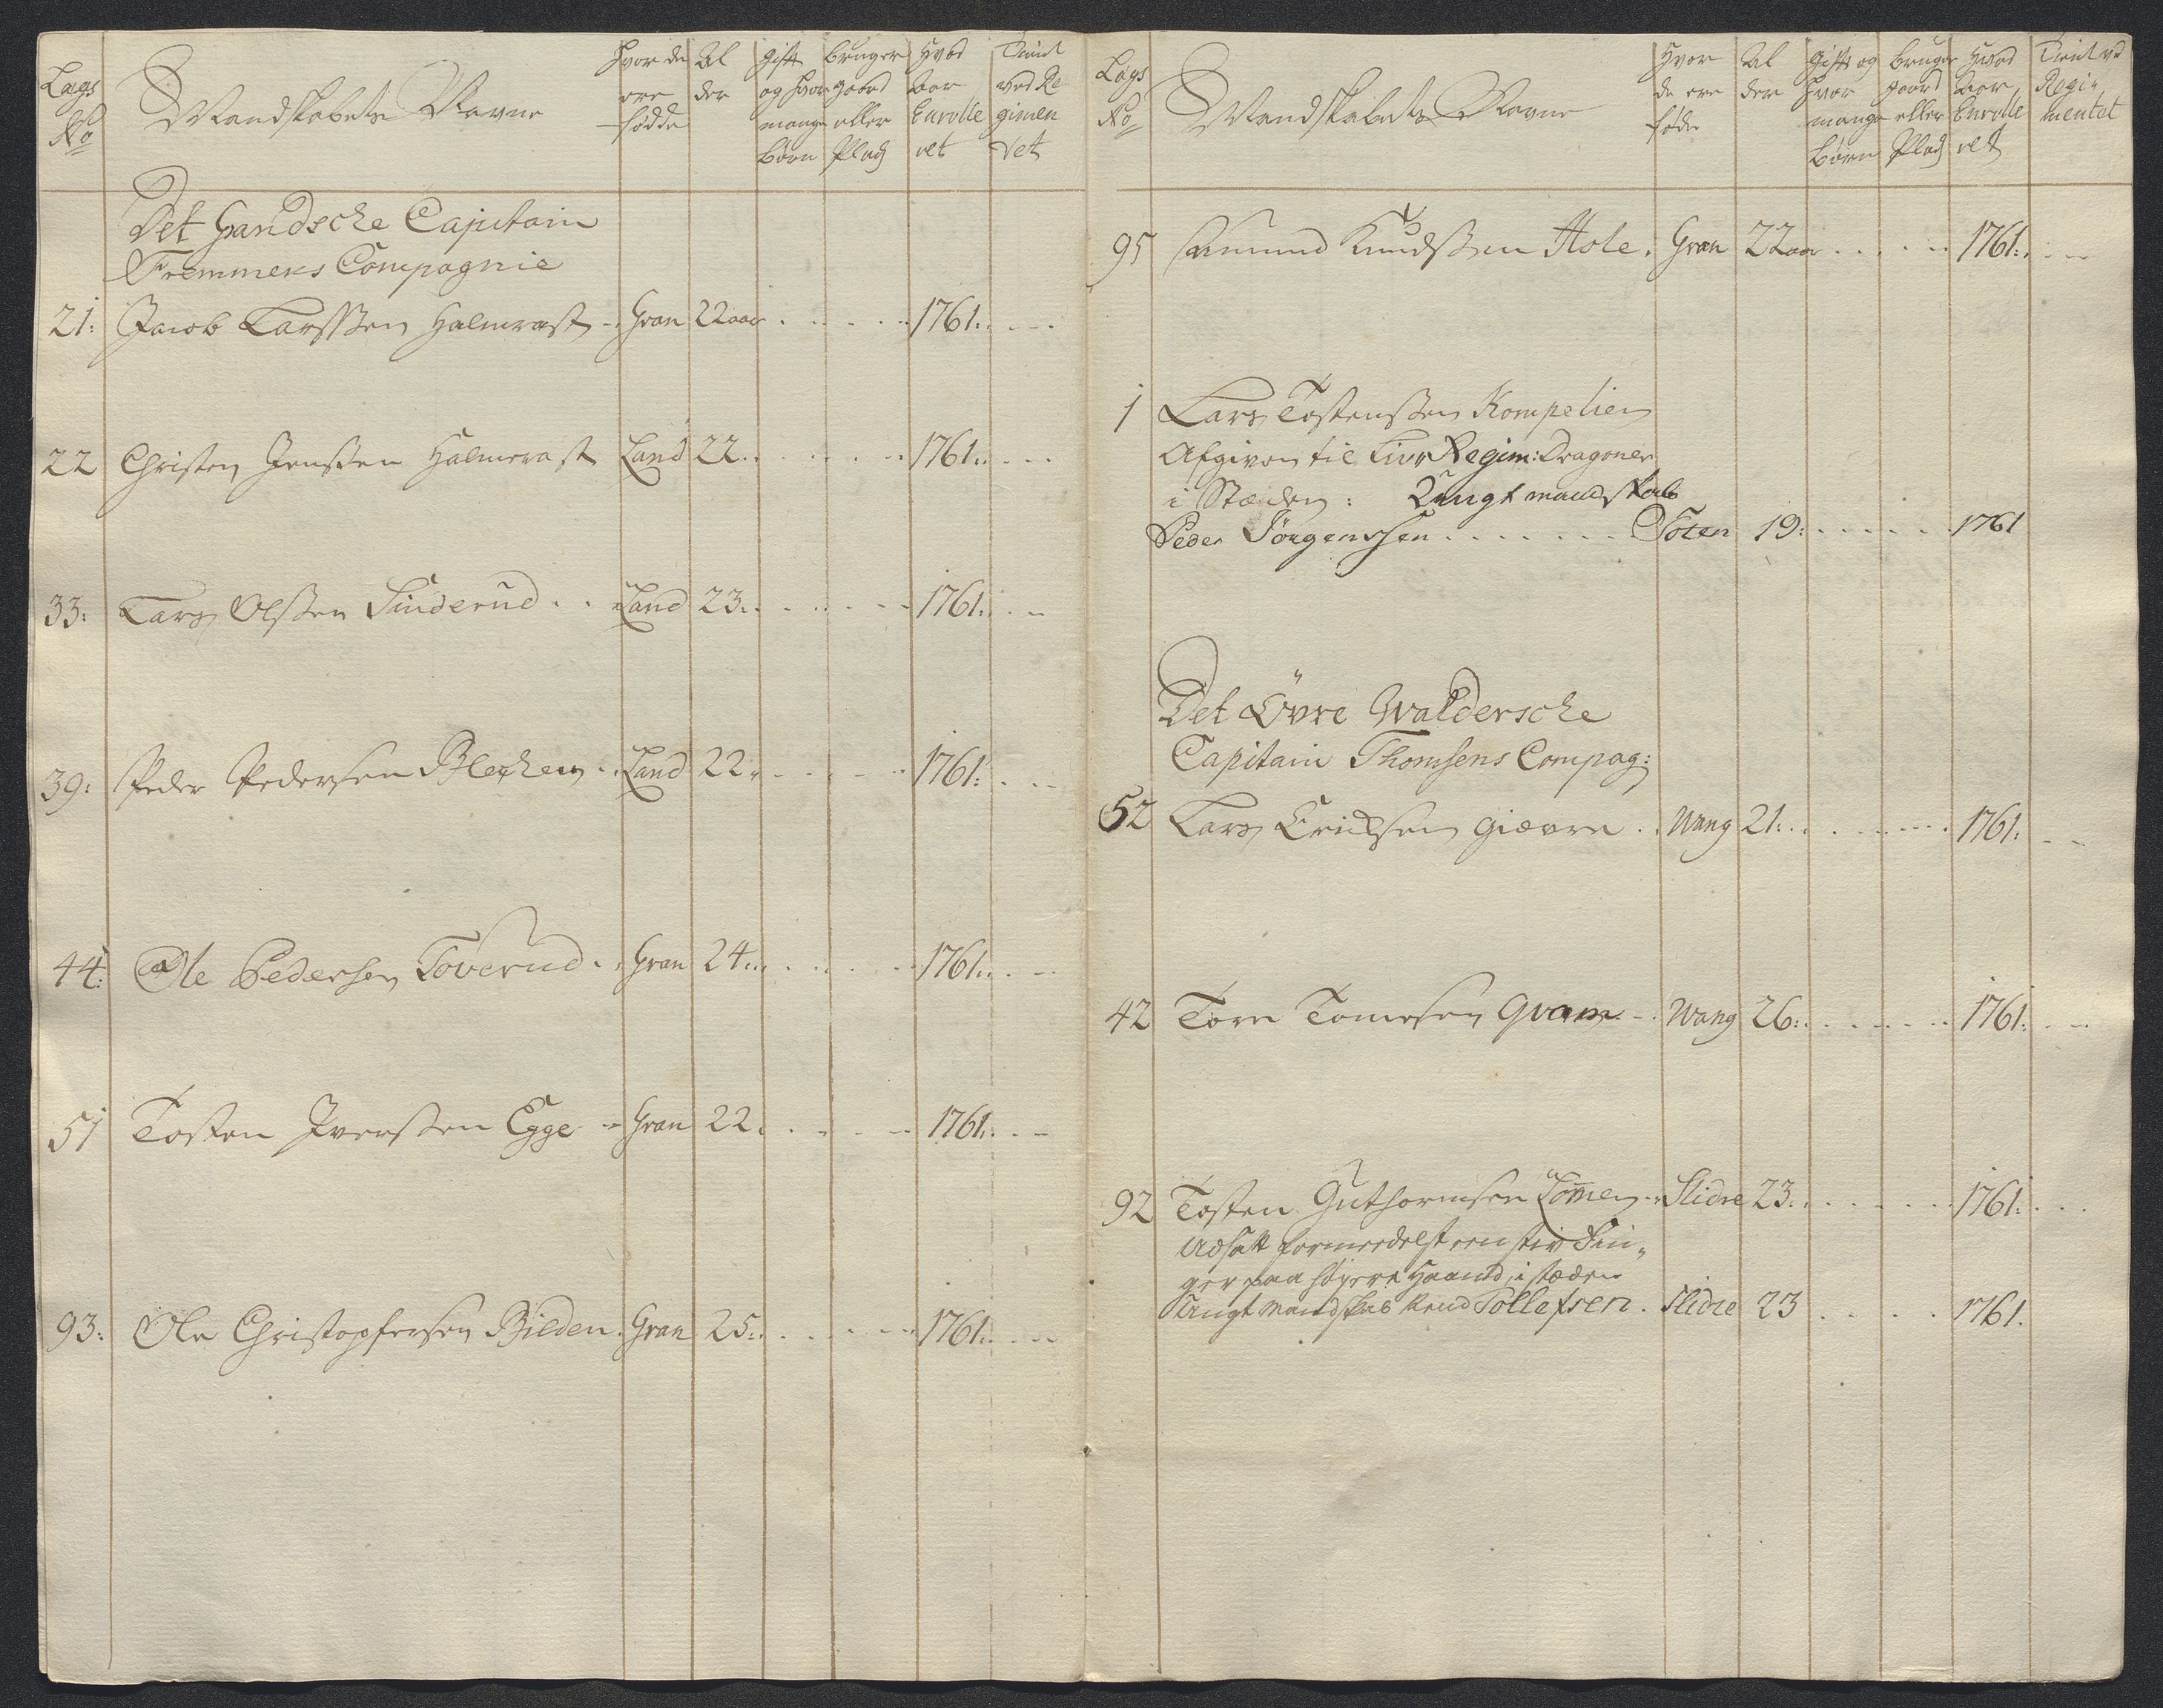 Lags No
Mandskabets Navne
Hvor de ere fødde
Alder
Gift og hvor mange Børn
bruger gaard eller Plads
Hvad Aar Enrolleret
Tient ved Regimentet
Det Handsche Capitain
Fremmens Compagnie
21: Jacob Larsssen Halmrast - Gran 22 aar 1761.
22 Christen Jenssen Halmrast Land 22. 1761.
33: Lars Olssen Sinderud . . Land 23. 1761.
39: Peder Pedersen Land 22. 1761.
44: Ole Pedersen Toverud . . Gran 24. 1761.
51 Tosten Iverssen Egge - Gran 22. 1761.
93: Ole Christophersen Bilden . Gran 25. 1761.
Lags No
Mandskabets Navne
Hvor de ere føde
Alder
Gift og hvor mange Børn
bruger gaard eller Plads
Hvad Aar Enrolleret
Tient ved Regimentet
95 Amund Knudssen Hole . Gran 22 aar 1761.
1 Lars Tostenssen Kompelien
Afgiven til Livr Regim: Dragoner
i Stæden: Ungt mandskab
Peder Jørgenssen . . . . Toten 19: 1761
Det Øvre Waldersche
Capitain Thomsens Compag:
52 Lars Ericksen Giævre . . Wang 21: 1761.
42 Tore Tomesen Qvam - . Wang 26: 1761:
92 Tosten Guthormsen Lomen - Slidre 23: 1761:
Udsatt formedelst een stiv Fin-
ger paa høyere Haand, i stæden
Ungt Mandskab Knud Tollefsen . Slidre 23 1761.